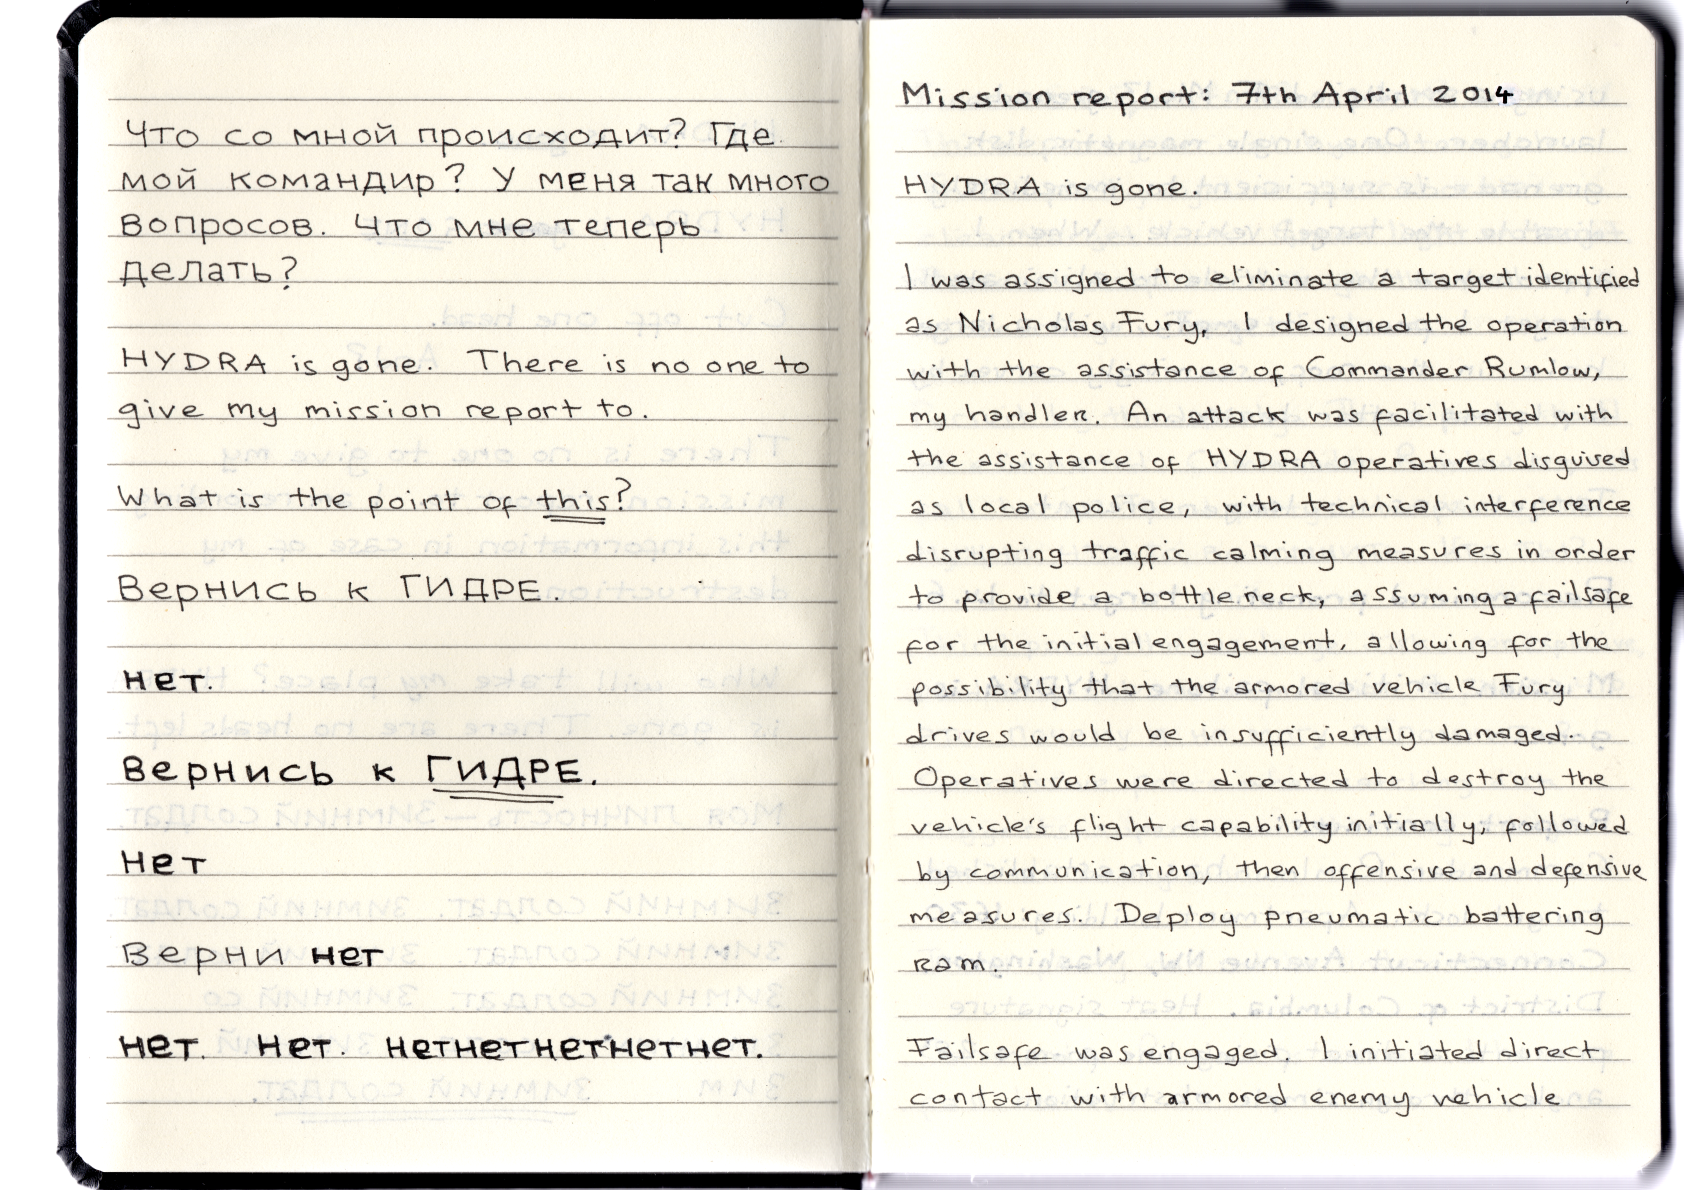 Что со мной происходит? Где
мой командир? У меня так много
вопросов. Что мне теперь
делать?
HYDRA is gone. There is no one to
give my mission report to.
What is the point of this?
Вернись к ГИДРЕ.
нет.
Вернись к ГИДРЕ.
Нет
Верни нет
нет. Нет. нетнетнетнетнет.
Mission report: 7th April 2014
HYDRA is gone.
I was assigned to eliminate a target identified
as Nicholas Fury. I designed the operation
with the assistance of Commander Rumlow,
my handler. An attack was facilitated with
the assistance of HYDRA operatives disguised
as local police, with technical interference
disrupting traffic calming measures in order
to provide a bottleneck, assuming a failsafe
for the initial engagement, allowing for the
possibility that the armored vehicle Fury
drives would be insufficiently damaged.
Operatives were directed to destroy the
vehicle's flight capability initially, followed
by communication, then offensive and defensive
measures. Deploy pneumatic battering
ram.
Failsafe was engaged. I initiated direct
contact with armored enemy vehicle